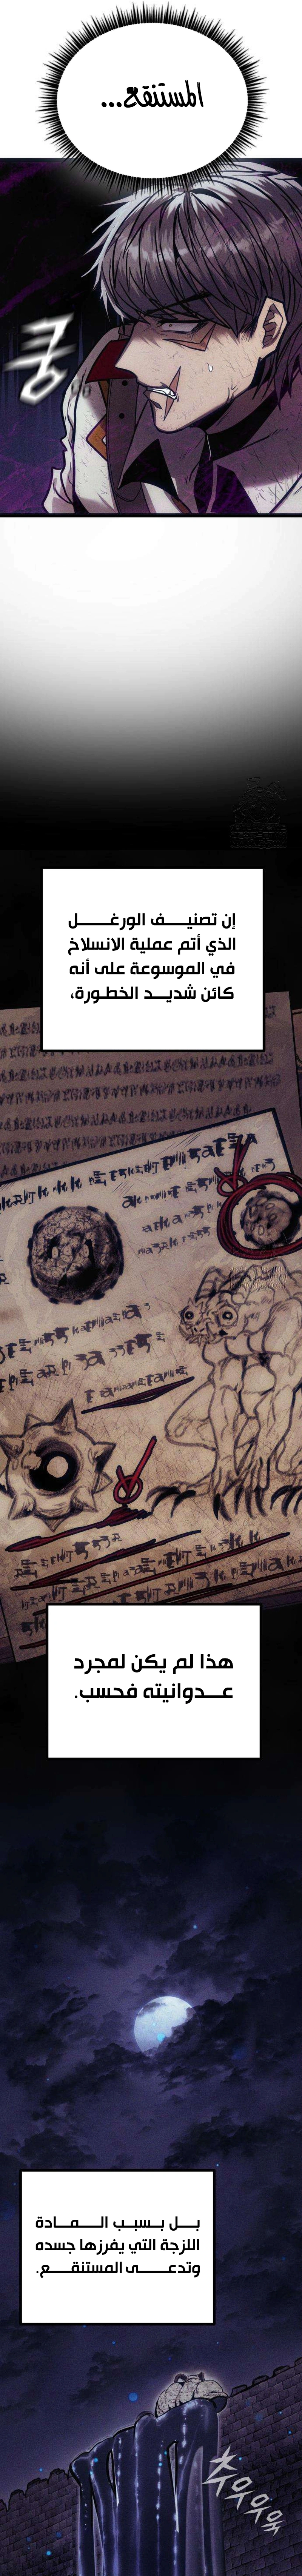 المستنقع...
쿵
إن تصنيف الورغل
الذي أتم عملية الانسلاخ
في الموسوعة على أنه
كائن شديد الخطورة،
هذا لم يكن لمجرد
عدوانيته فحسب.
بل بسبب المادة
اللزجة التي يفرزها جسده
وتدعى المستنقع.